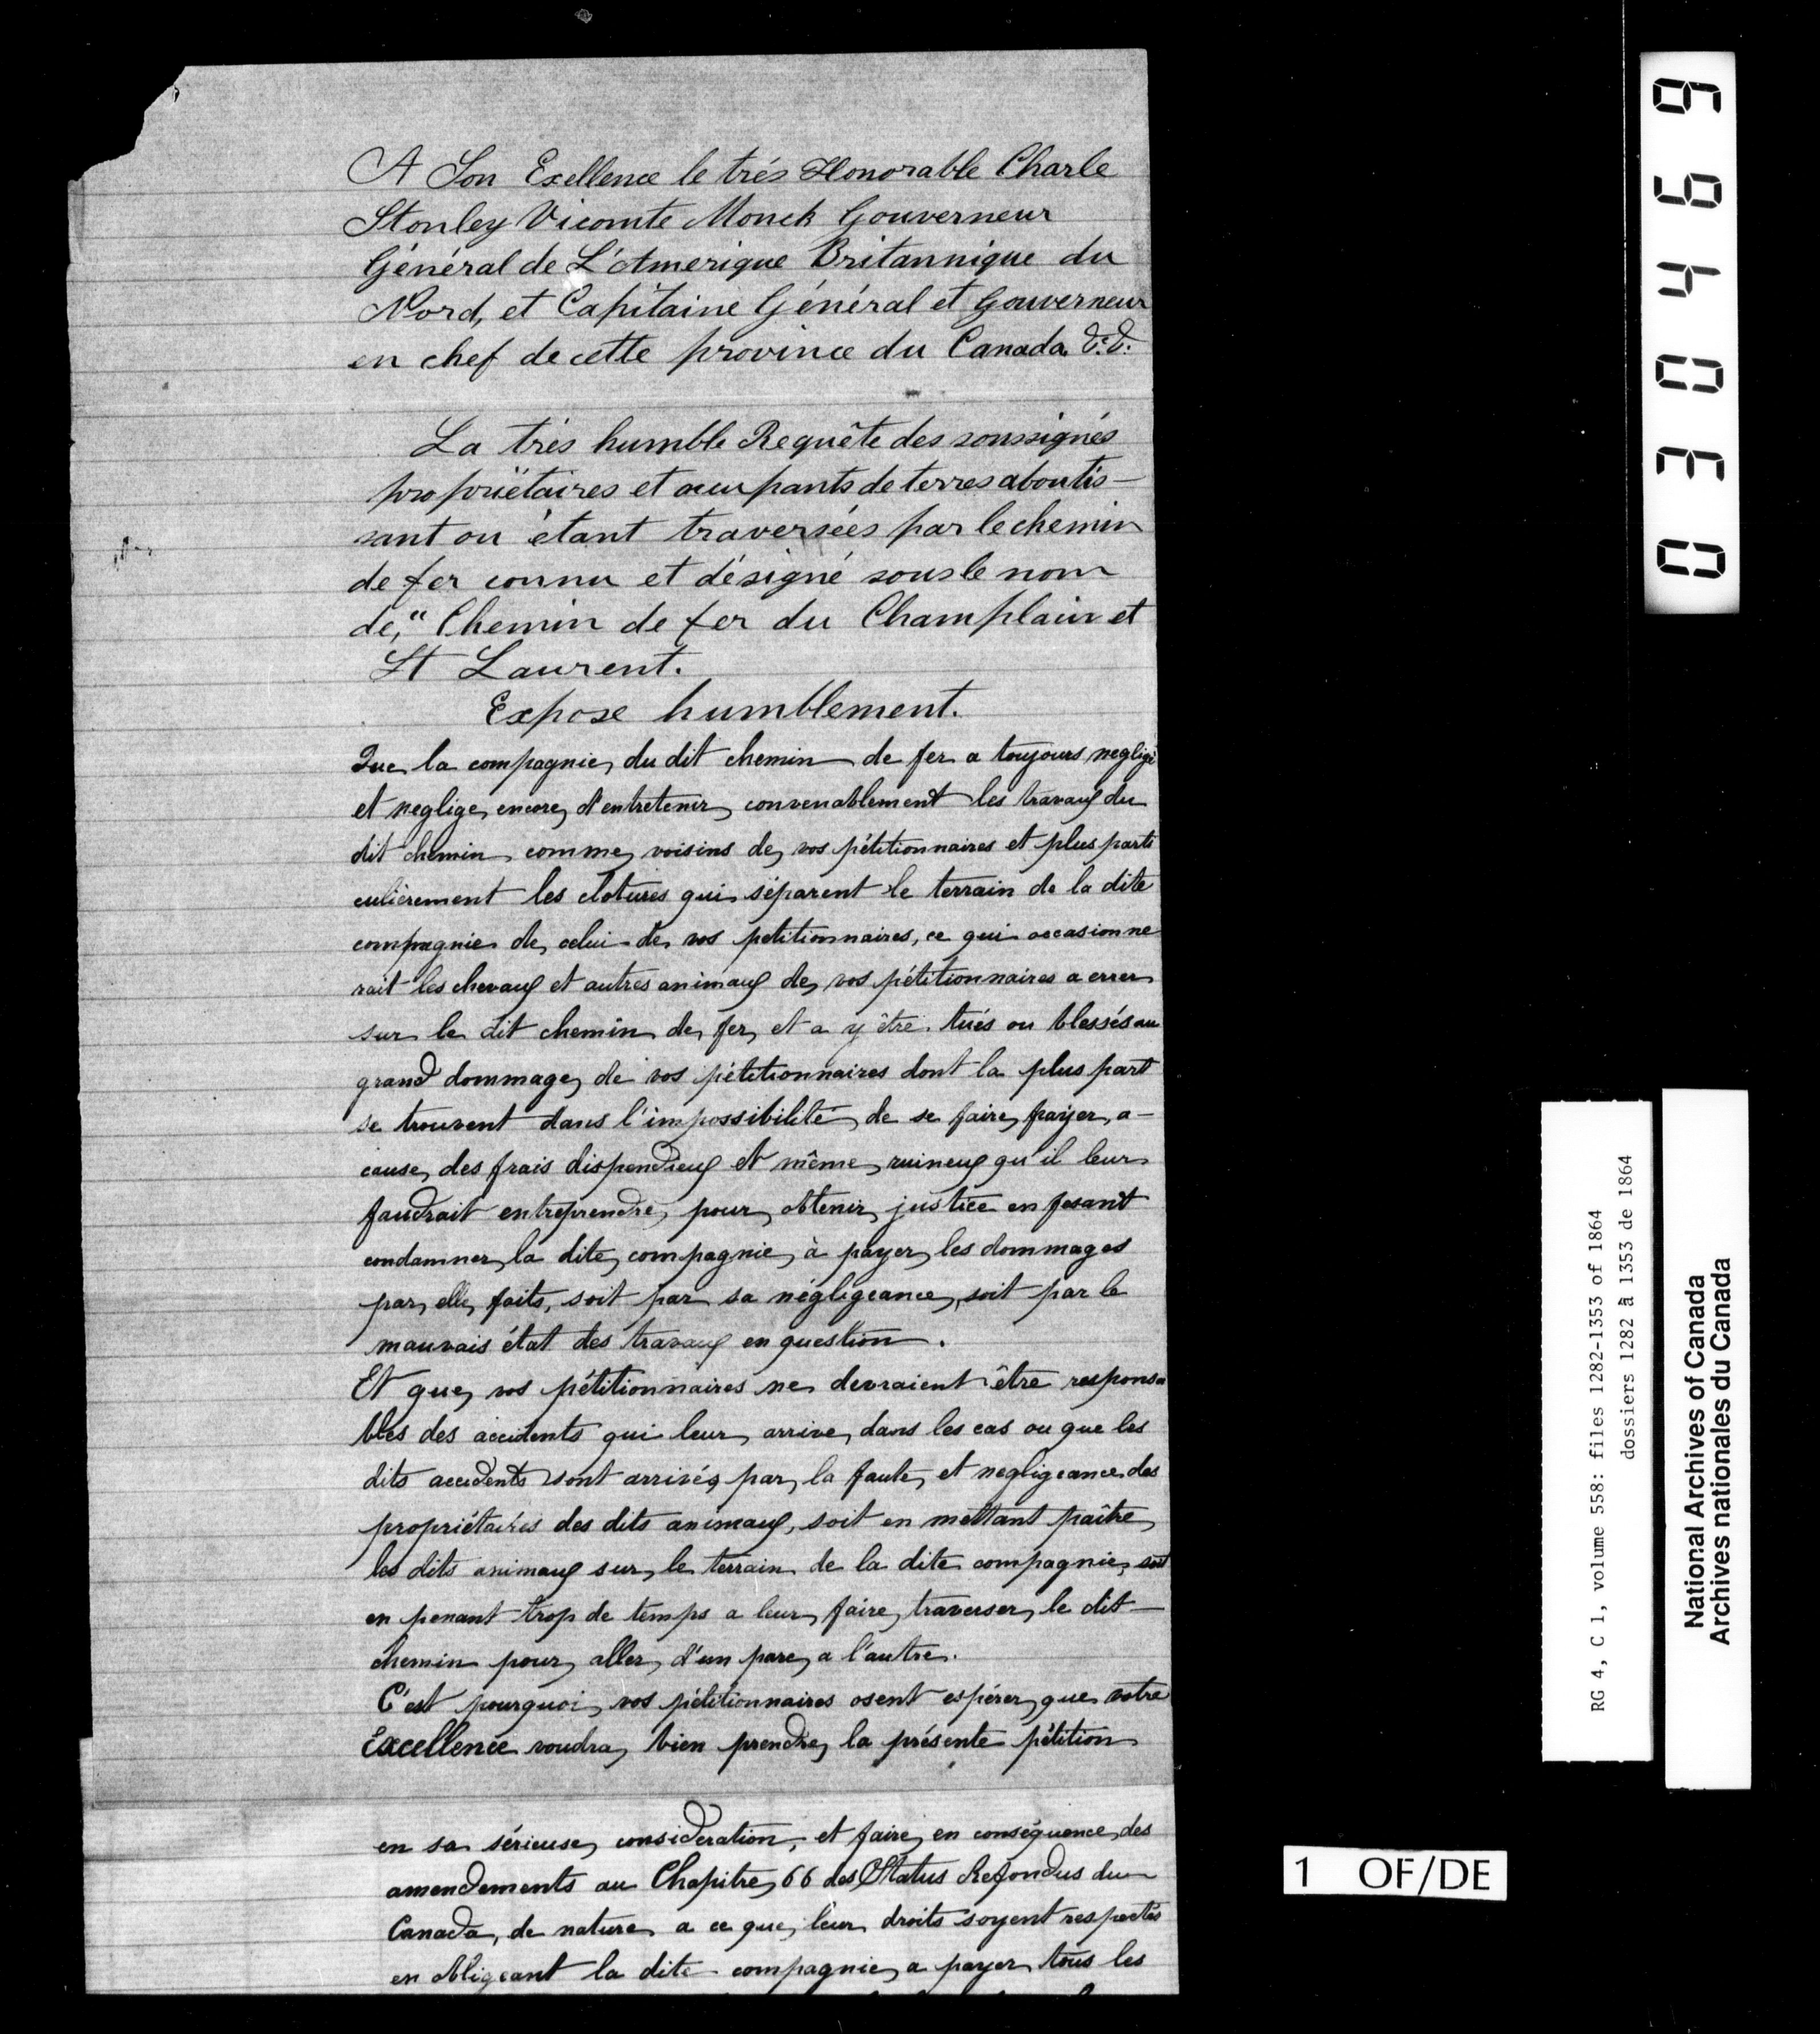 A Son Exellence le trés Honorable Charle
Stonley Vicomte Monck Gouverneur
Général de L'Amerique Britannique du
Nord, et Capitaine Général et Gouverneur
en chef de cette province du Canada &c. &c.
La trés humble Requête des soussignés
propriëtaires et occupants de terres aboutis-
sant ou étant traversées par le chemin
de fer connu et désigné sous le nom
de, "Chemin de fer du Champlain et
St Laurent.
Expose humblement.
Que la compagnie du dit chemin de fer a toujours negligé
et neglige encore d'entretenir convenablement les travaux du
dit chemin comme voisins de vos pétitionnaires et plus parti
culièrement les clotures qui séparent le terrain de la dite
compagnie de celui de vos petitionnaires, ce qui occasionne
rait les chevaux et autres animaux de vos pétitionnaires a errer
sur le dit chemin de fer et a y être tués ou blessés au
grand dommage de vos pétitionnaires dont la plus part
se trouvent dans l'impossibilité de se faire payer, a-
cause des frais dispendieux et même ruineux qu'il leur
faudrait entreprendre pour obtenir justice en fesant
condamner la dite compagnie à payer les dommages
par elle faits, soit par sa négligeance, soit par le
mauvais état des travaux en question.
Et que vos pétitionnaires ne devraient être responsa
bles des accidents qui leur arrive dans les cas ou que les
dits accidents sont arrivés par la faute et negligeance des
propriétaires des dits animaux, soit en mettant paître
les dits animaux sur le terrain de la dite compagnie, soit
en penant trop de temps a leur faire traverser le dit-
chemin pour aller d'un parc a l'autre.
C'est pourquoi vos pétitionnaires osent espérer que votre
Excellence voudra bien prendre la présente pétition
en sa sérieuse consideration, et faire en conséquence des
amendements au Chapitre 66 des Status Refondus du
Canada, de nature a ce que leur droits soyent respectés
en obligeant la dite compagnie a payer tous les
030469
RG 4, C 1, volume 558: files 1282-1353 of 1864
dossiers 1282 à 1353 de 1864
National Archives of Canada
Archives nationales du Canada
1 OF/DE